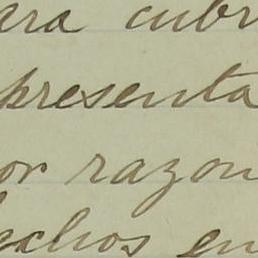 ara cubr
presenta
or razon
echos en